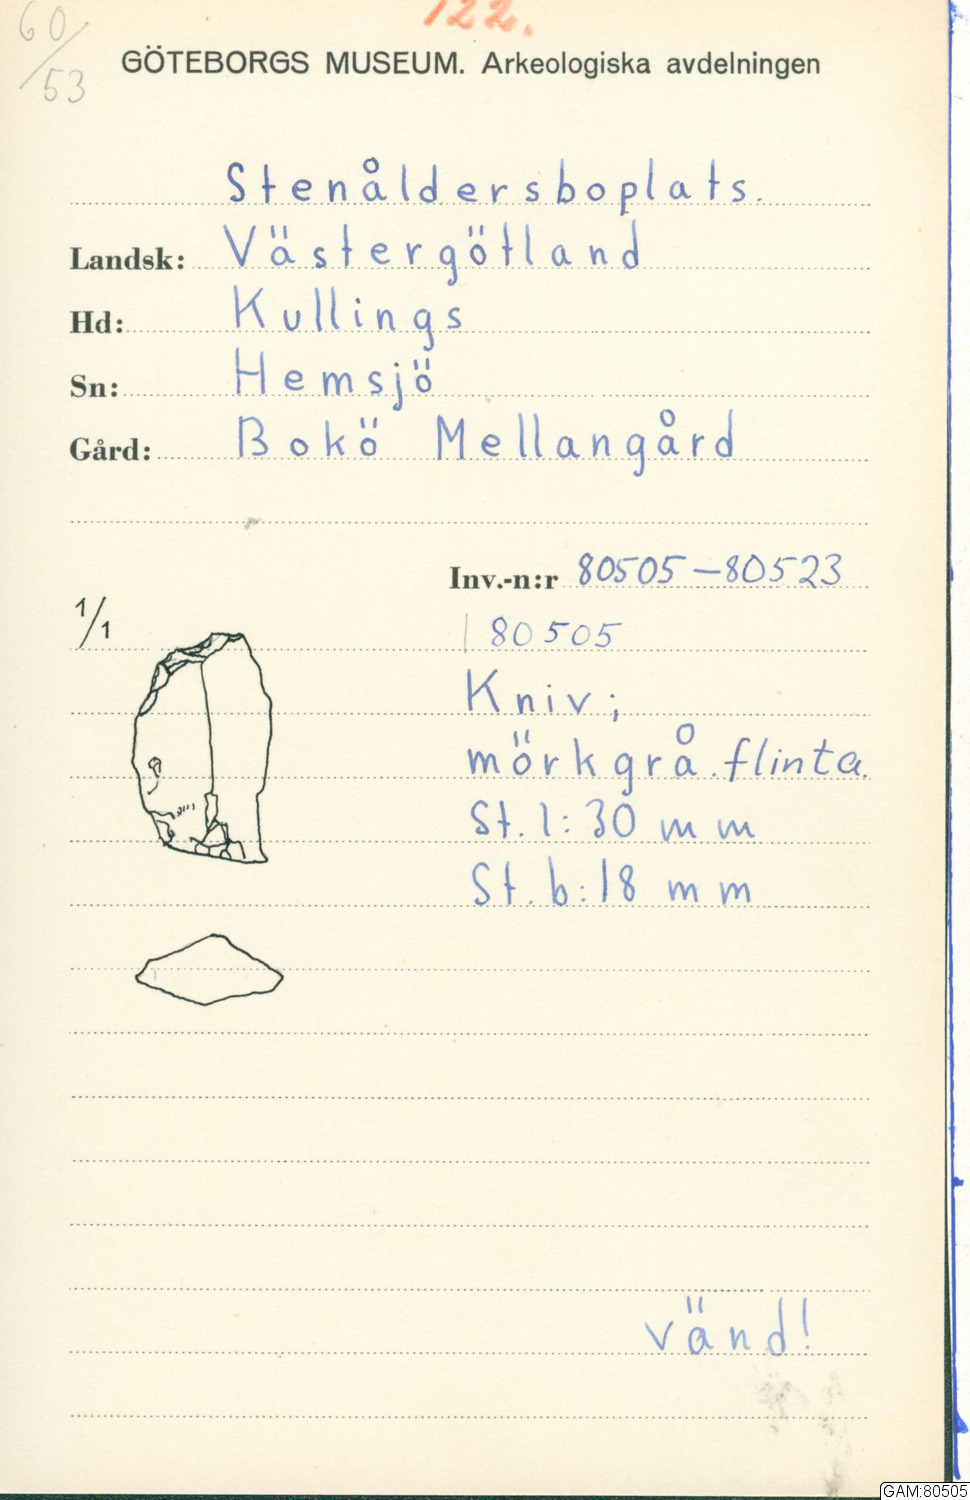 122.
60/53
GÖTEBORGS MUSEUM. Arkeologiska avdelningen
Stenåldersboplats.
Landsk: Västergötland
Hd: Kullings
Sn: Hemsjö
Gård: Bokö Mellangård
Inv.-n:r 80505-80523
1/1
80505
Kniv;
mörkgrå flinta.
St. l: 30 mm
St. b: 18 mm
vänd!
GAM:80505